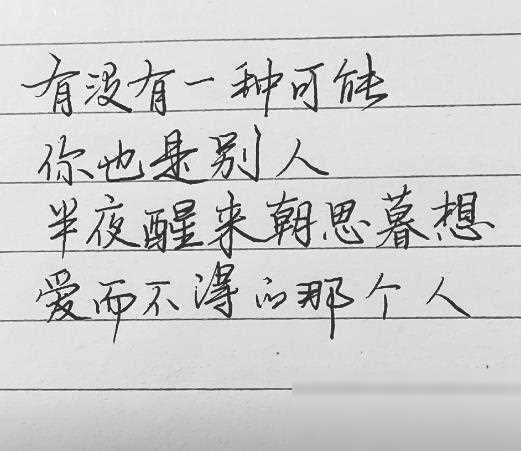 有没有一种可能
你也是别人
半夜醒来朝思暮想
爱而不得的那个人